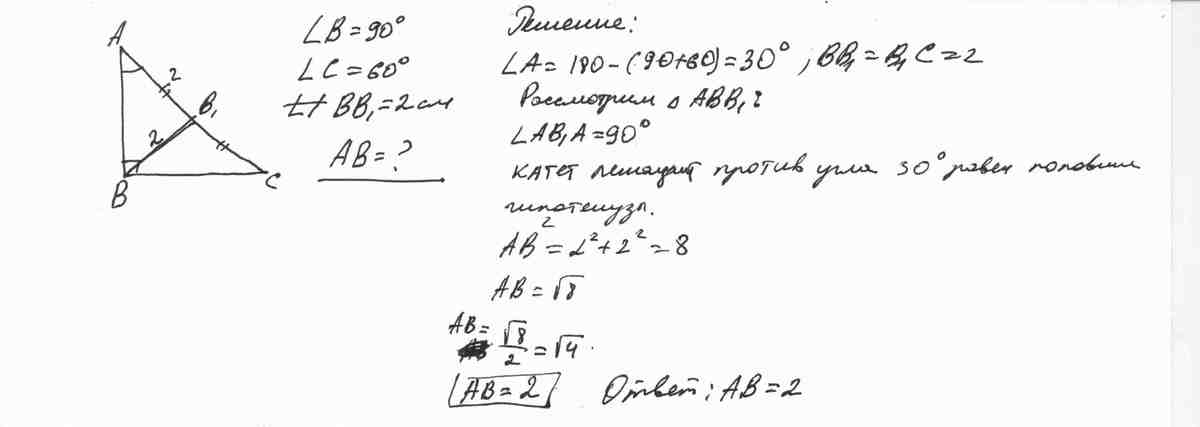 A
2
B₁
2
B
C
∠B = 90°
∠C = 60°
BB₁ = 2 см
AB = ?
Решение:
∠A = 180 - (90+60) = 30° ; BB₁ = B₁C = 2
Рассмотрим △ ABB₁:
∠AB₁A = 90°
катет лежащий против угла 30° равен половине
гипотенузы.
AB² = 2² + 2² = 8
AB = √8
AB = √8/2 = √4.
AB = 2
Ответ: AB = 2